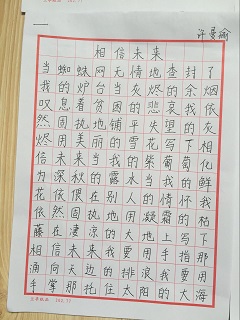 相信未来
当蜘蛛网无情地查封了
我的炉台当灰烬的余烟
叹息着贫困的悲哀我依
然固执地铺平失望的灰
烬用美丽的雪花写下相
信未来当我的紫葡萄化
为深秋的露水当我的鲜
花依偎在别人的情怀我
依然固执地用凝霜的枯
藤在凄凉的大地上写下
相信未来我要用手指那
涌向天边的排浪我要用
手掌那托住太阳的大海